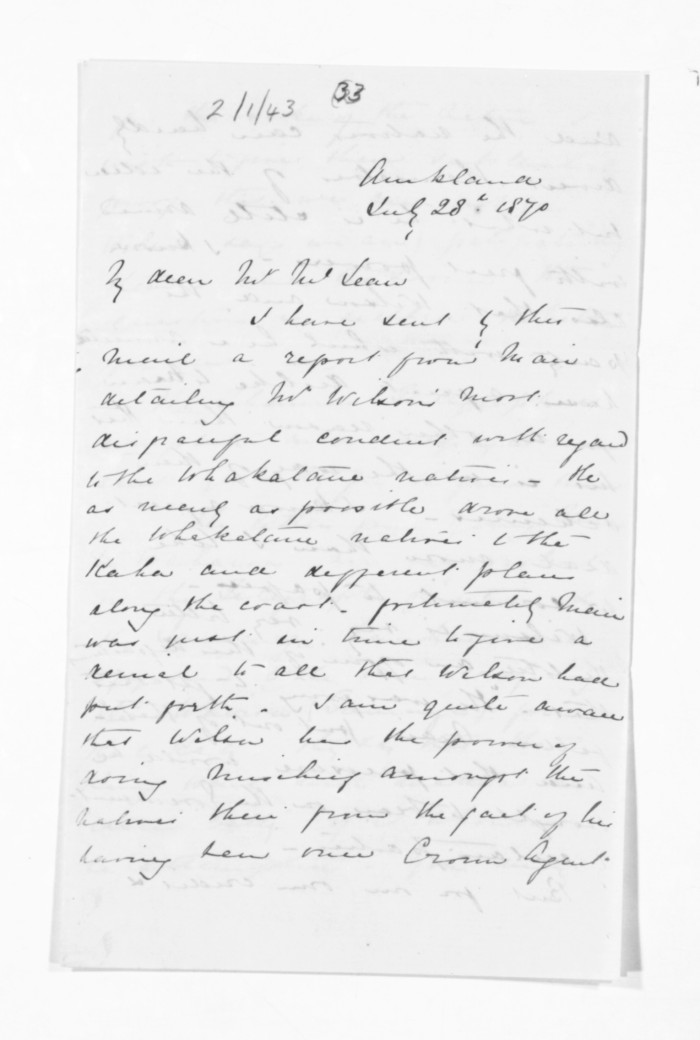 2/1/43 33
Auckland
July 28th 1870
My dear Mr McLean
I have sent by this
mail a report from Mair
detailing Mr Wilson's most
disgraceful conduct with regard
to the Whakatane natives - He
as nearly as possible drove all
the Whakatane natives to the
Kaha and different places
along the coast. fortunately Mair
was just in time to give a
denial to all that Wilson had
put forth. I am quite aware
that Wilson has the power of
doing mischief amongst the
natives there from the fact of his
having been once Crown Agent